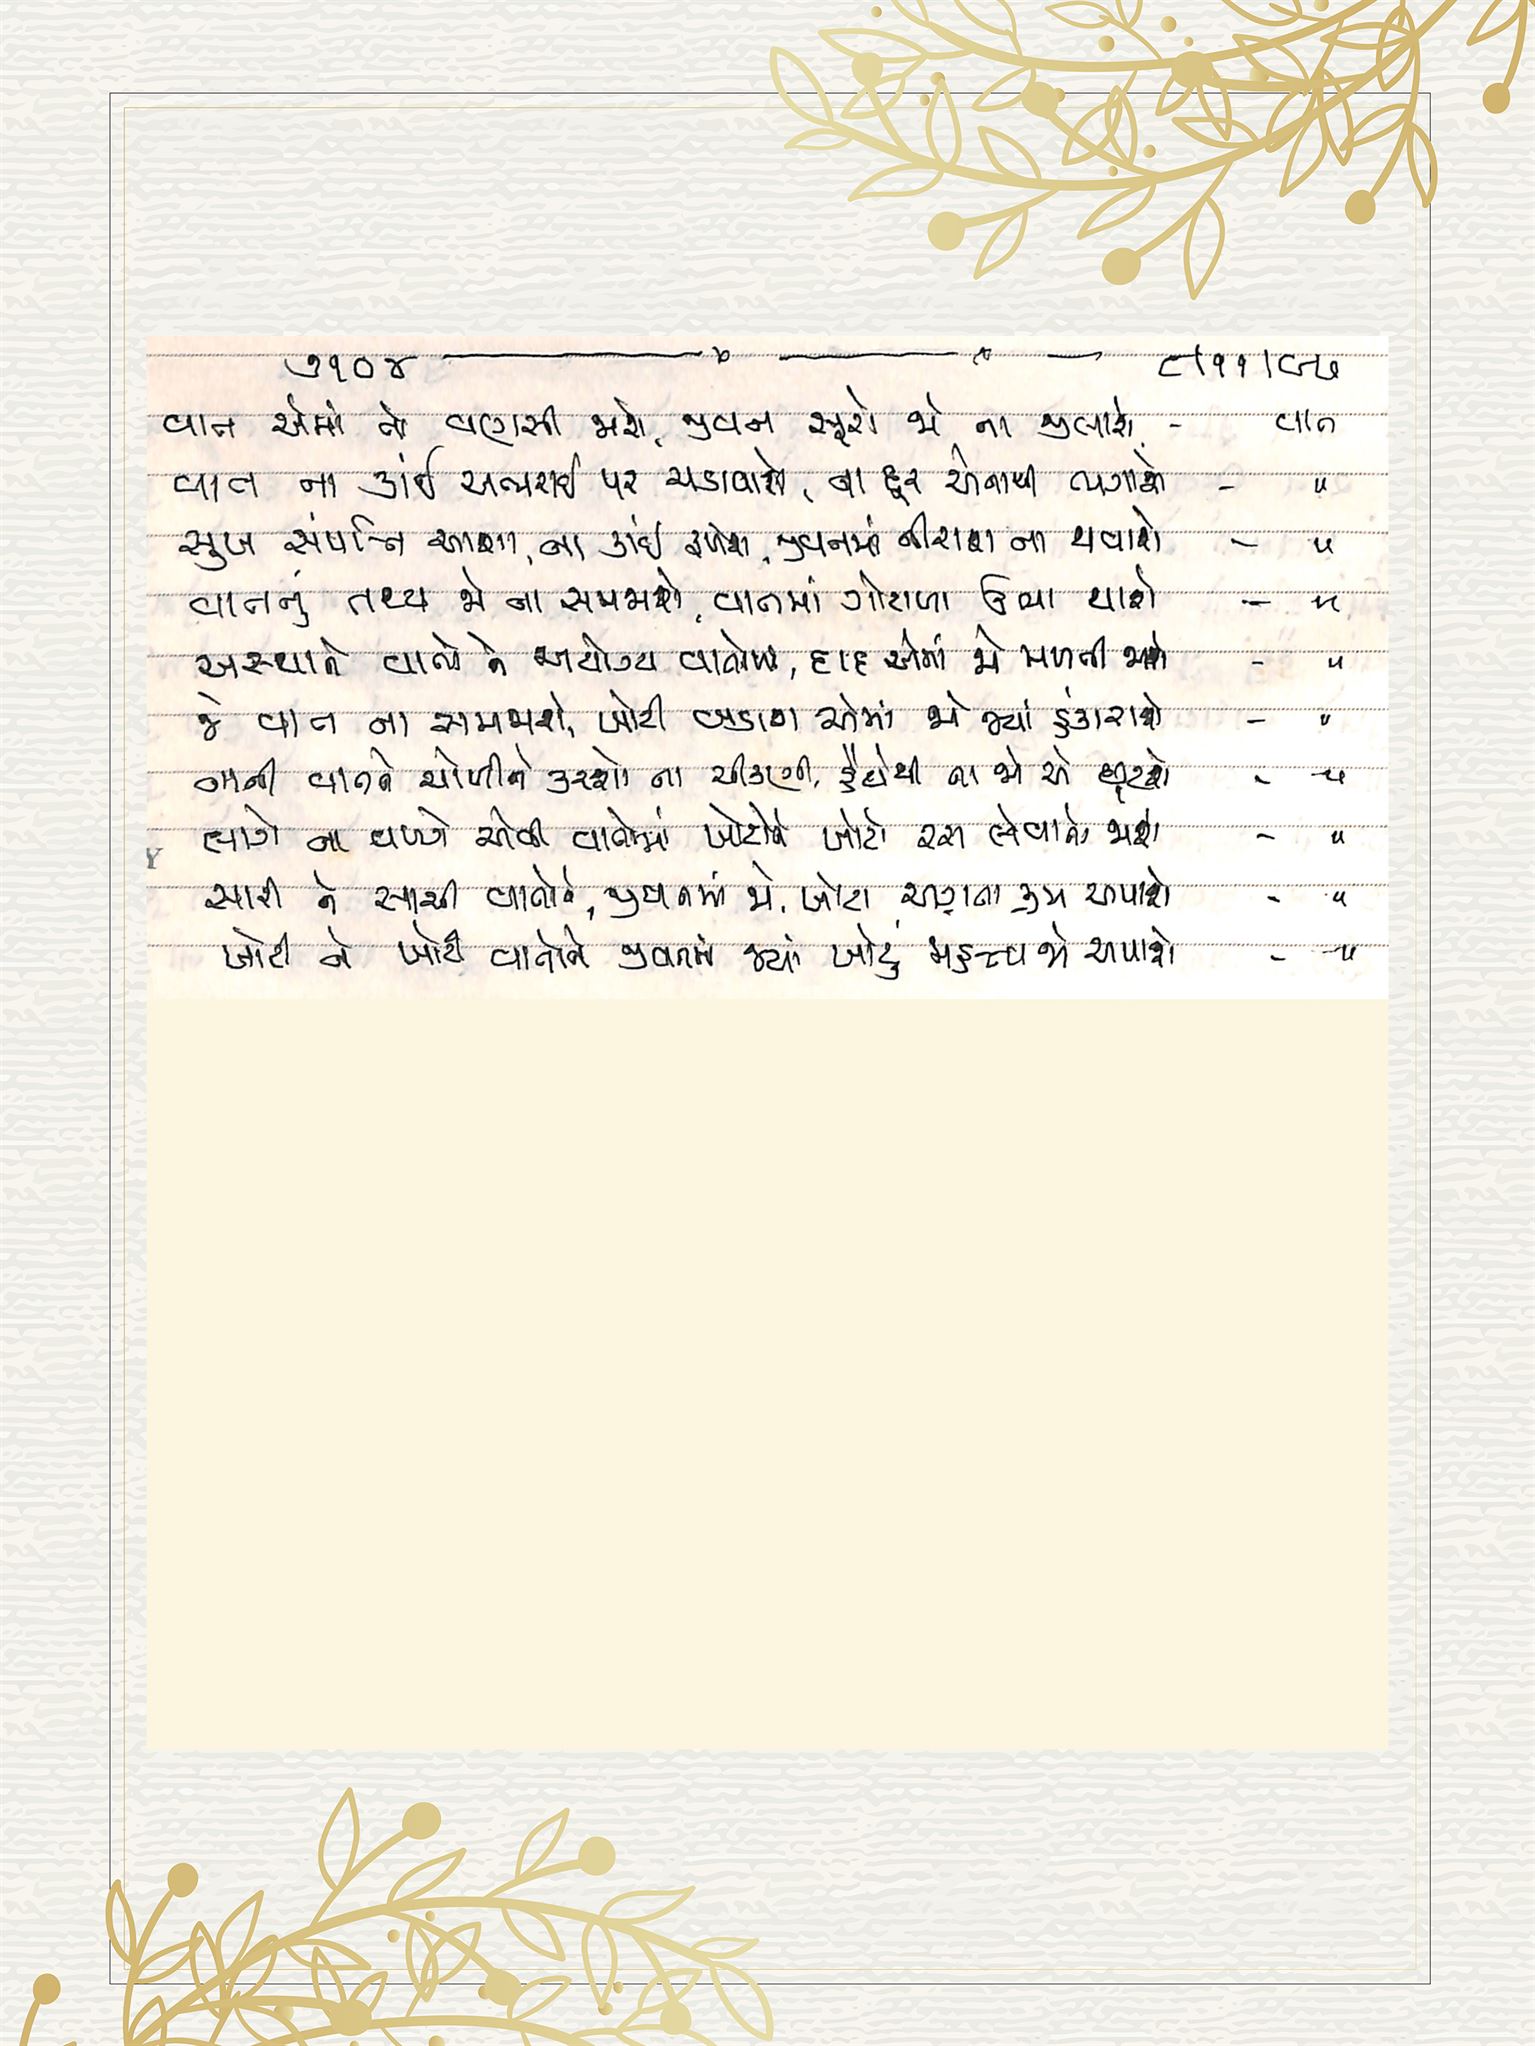 ૭૧૦૪ ૮/૧૧/૯૭
વાત એમાં તો વણસી જાશે, જીવન સૂરો જો ના જીલાશે - વાત
વાત ના કાંઈ અભરાઈ પર ચડાવાશે, ના દૂર એનાથી ભગાશે - "
સુખ સંપત્તિ આશા, ના કાંઈ ફળેશે, જીવનમાં નીરાશ ના થવાશે - "
વાતનું તથ્ય જો ના સમજાશે, વાતમાં ગોટાળા ઊભા થાશે - "
અસ્થાને વાતો ને અયોગ્ય વાતોને, દાદ એમાં જો મળતી જાશે - "
જે વાત ના સમજાશે, ખોટી બડાશ એમાં જો જ્યાં હંકારાશે - "
નાની વાતને ચોળીને કરશો ના ચીકણી, હૈયેથી ના જો એ છૂટશે - "
લાગે ના વળગે એવી વાતોમાં ખોટોને ખોટો રસ લેવાતો જાશે - "
સારી ને સાચી વાતોને, જીવનમાં જો ખોટા ક્રમ અપાશે - "
ખોટી ને ખોટી વાતોને જીવનમાં જ્યાં ખોટું મહત્ત્વ જો અપાશે - "